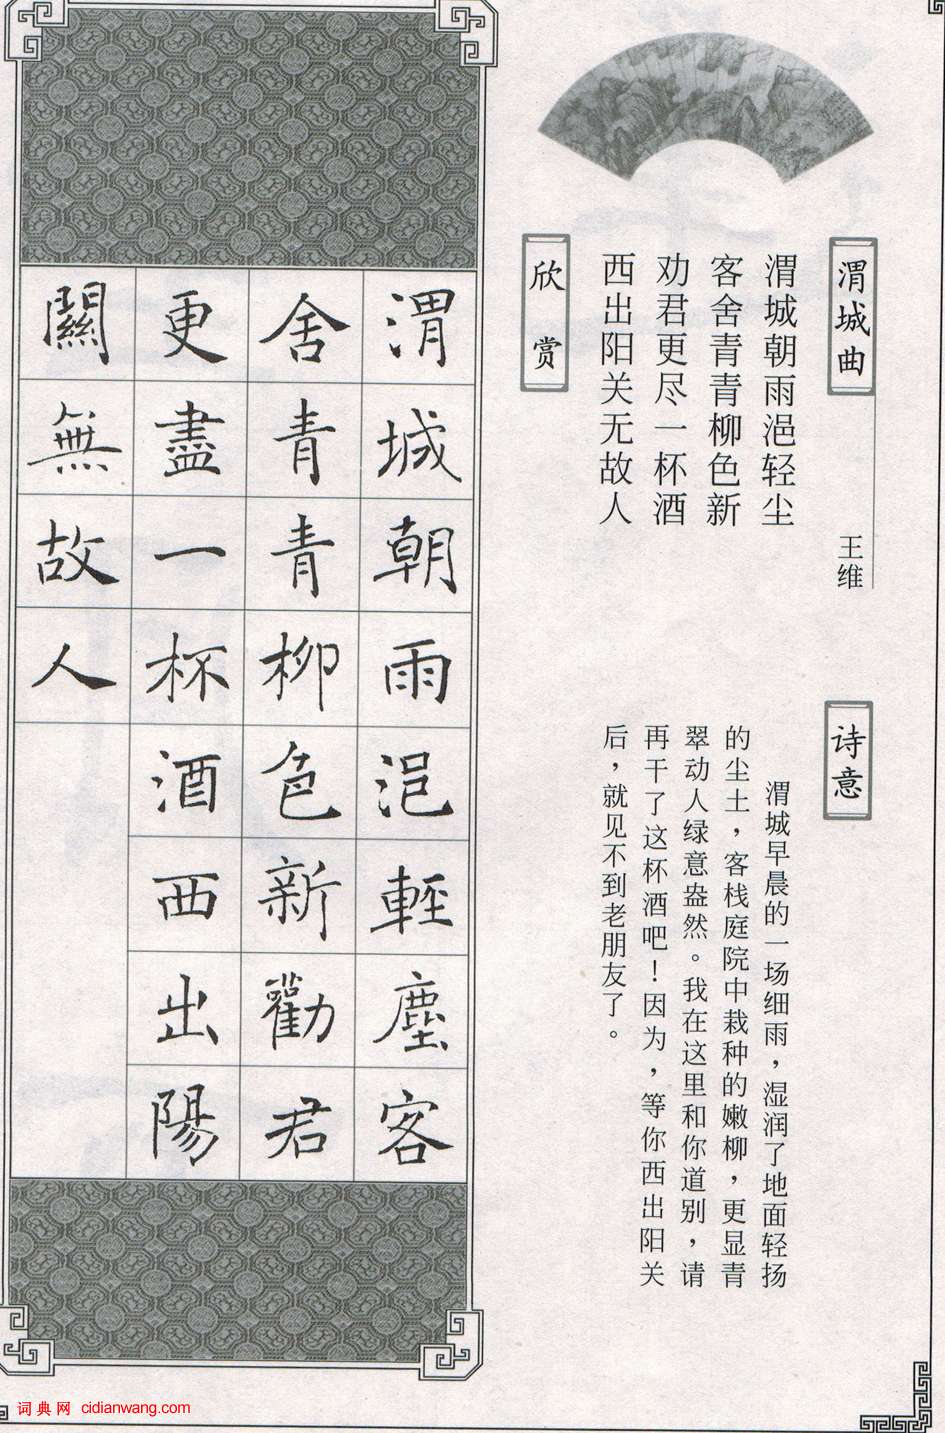 渭城曲
王维
渭城朝雨浥轻尘
客舍青青柳色新
劝君更尽一杯酒
西出阳关无故人
欣赏
诗意
渭城早晨的一场细雨，湿润了地面轻扬
的尘土，客栈庭院中栽种的嫩柳，更显青
翠动人绿意盎然。我在这里和你道别，请
再干了这杯酒吧！因为，等你西出阳关
后，就见不到老朋友了。
渭城朝雨浥輕塵客
舍青青柳色新勸君
更盡一杯酒西出陽
關無故人
词典网 cidianwang.com